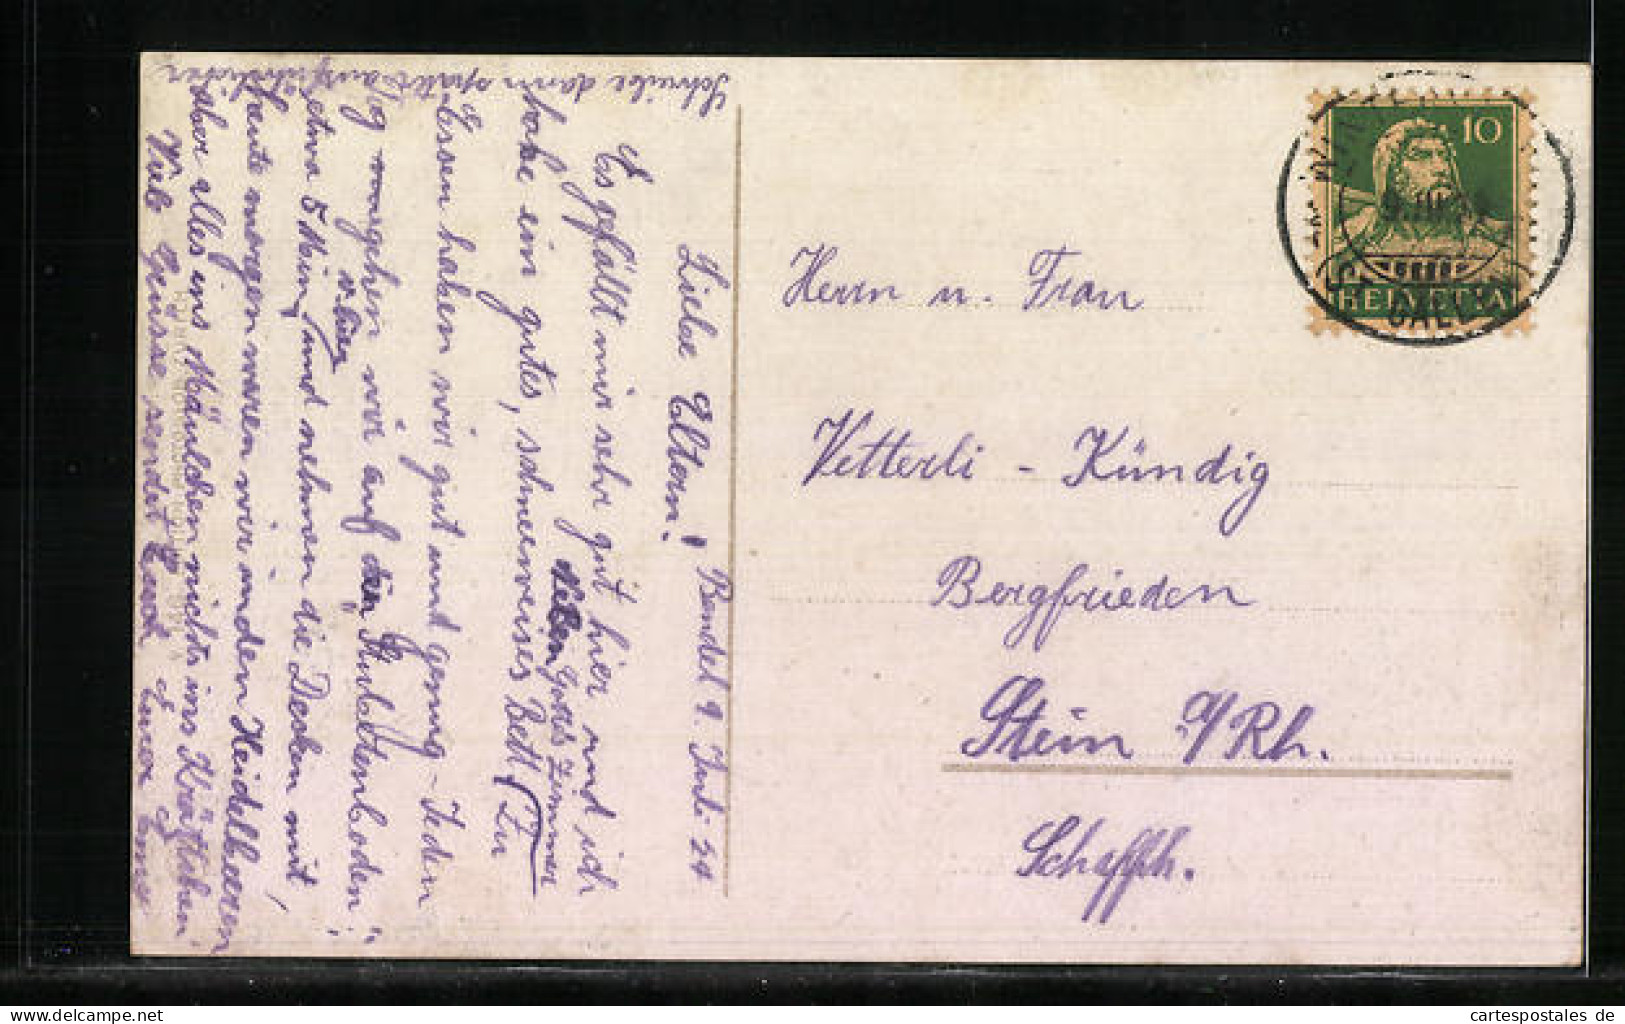 Bendel 9. Juli 24
Liebe Eltern!
Es gefällt mir sehr gut hier und ich
habe ein gutes, schneeweises Bett (Neben Gotts Zimmer) Zu
Essen haben wir gut und genug - Jeden
Tag gehen wir auf den "Hulftenboden",
etwa 5 Min. v. hier, und nehmen die Decken mit,
heute morgen waren wir in den Heidelbeeren
aber alles ins Mäulchen nichts ins Krättchen
Viele Grüsse sendet Euch Euer
Schreibe dann später ausführlicher
Herrn u. Frau
Vetterli - Kündig
Bergfrieden
Stein a/Rh.
Schaffh.
10
HELVETIA
cartespostales de